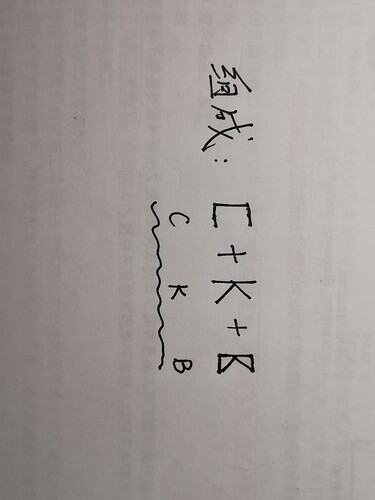 组成: C+K+B
C K B